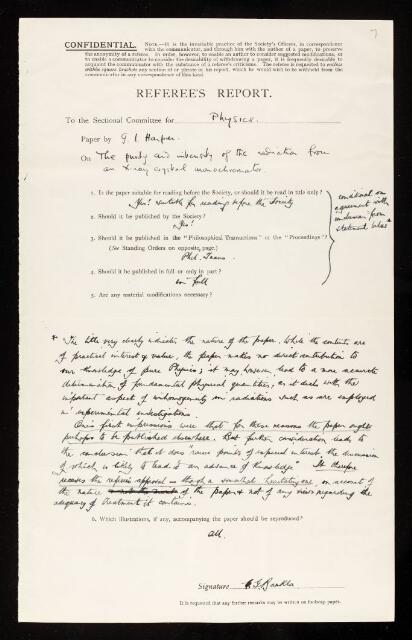 7
CONFIDENTIAL. NOTE.—It is the invariable practice of the Society's Officers, in correspondence
with the communicator, and through him with the author of a paper, to preserve
the anonymity of a referee. In order, however, to enable an author to consider suggested modifications, or
to enable a communicator to consider the desirability of withdrawing a paper, it is frequently desirable to
acquaint the communicator with the substance of a referee's criticisms. The referee is requested to enclose
within square brackets any section of or phrase in his report, which he would wish to be withheld from the
communicator in any correspondence of this kind.
REFEREE'S REPORT.
To the Sectional Committee for Physics.
Paper by G. I. Harper.
On The purity and intensity of the radiation from
an X-ray crystal monochromator.
1. Is the paper suitable for reading before the Society, or should it be read in title only?
Yes! suitable for reading before the Society
2. Should it be published by the Society?
Yes!
3. Should it be published in the "Philosophical Transactions" or the "Proceedings"?
(See Standing Orders on opposite page.)
Phil. Trans.
4. Should it be published in full or only in part?
in full
5. Are any material modifications necessary?
conditional on
agreement with
conclusion from
statement below *
* The title very clearly indicates the nature of the paper. While the contents are
of practical interest & value, the paper makes no direct contribution to
our knowledge of pure Physics; it may, however, lead to a more accurate
determination of fundamental physical quantities, as it deals with the
important aspect of inhomogeneity in radiations such as are employed
in experimental investigations.
One's first impressions were that for these reasons the paper ought
perhaps to be published elsewhere. But further consideration leads to
the conclusion that it does "raise points of unusual interest the discussion
of which is likely to lead to an advance of knowledge". It therefore
receives the referee's approval — though a somewhat hesitating one, on account of
the nature of the paper & not of any views regarding the
adequacy of treatment it contains.
6. Which illustrations, if any, accompanying the paper should be reproduced?
All.
Signature C. G. Barkla
It is requested that any further remarks may be written on foolscap paper.